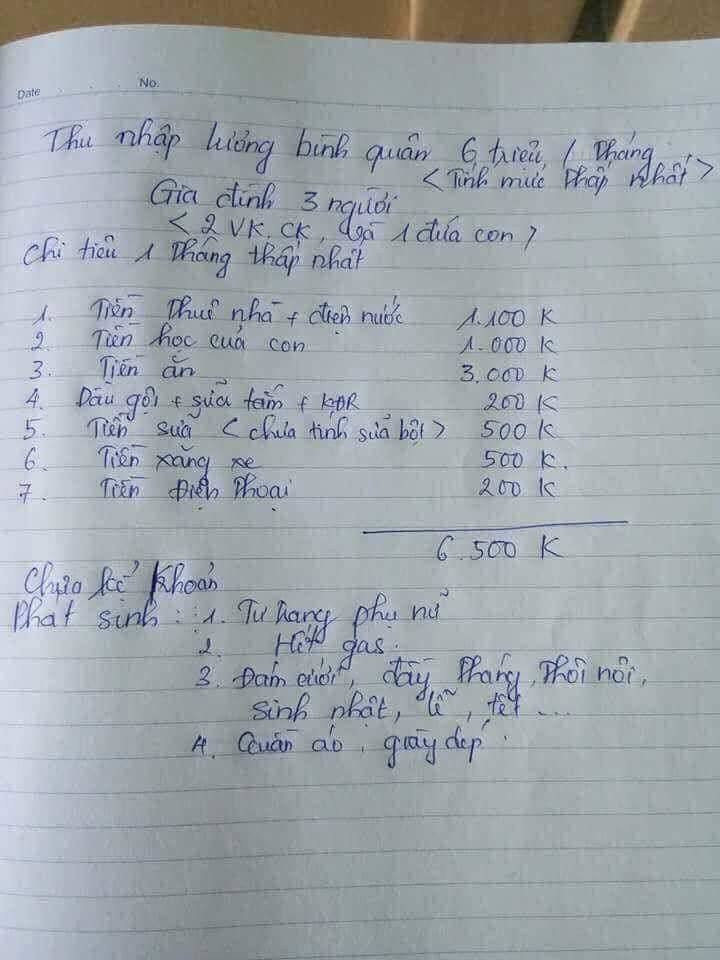 Date No.
Thu nhập lương bình quân 6 triệu / Tháng
< Tính mức thấp nhất >
Gia đình 3 người
< 2 VK.CK, và 1 đứa con >
Chi tiêu 1 Tháng thấp nhất
1. Tiền Thuê nhà + điện nước 1.100 K
2. Tiền học của con 1.000 K
3. Tiền ăn 3.000 K
4. Dầu gội + sửa tắm + KĐR 200 K
5. Tiền sửa < chưa tính sửa bột > 500 K
6. Tiền xăng xe 500 K.
7. Tiền Điện Thoại 200 K
6.500 K
Chưa kể khoản
Phát sinh : 1. Tư trang phụ nử
2. Hết gas.
3. Đám cưới, đầy tháng, Thôi nôi,
Sinh nhật, lễ, tết ...
4. Quần áo, giầy dép.